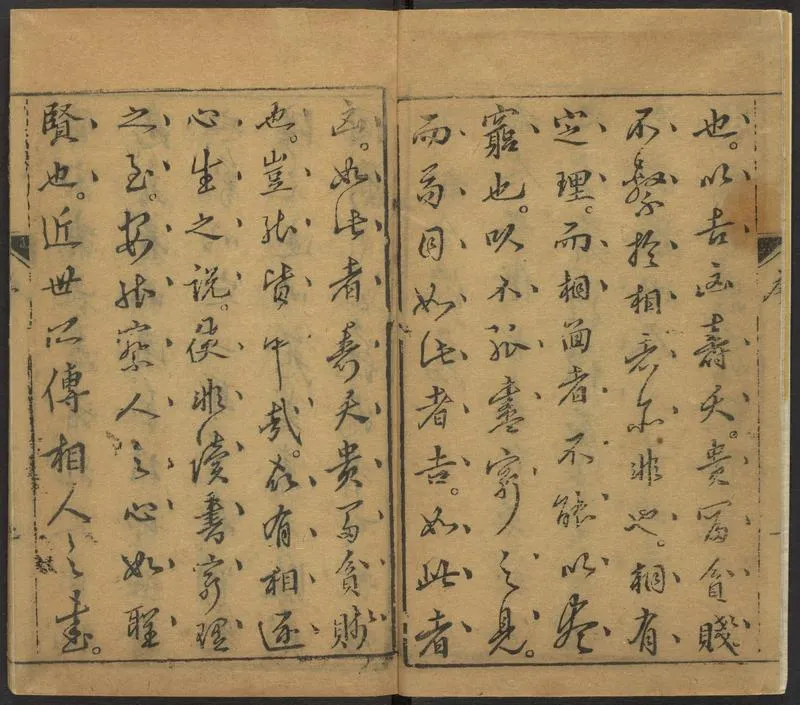 也。以吉凶壽夭。貴富貧賤
不繫於相亦非也。相有
定理。而相面者不能以盡
窮也。以不能盡窮之見
而苟目如此者吉。如此者
凶。如此者壽夭貴富貧賤
也。豈能皆中哉。故有相逐
心生之說。使非讀書窮理
之至。安能察人之心如聖
賢也。近世所傳相人之書。